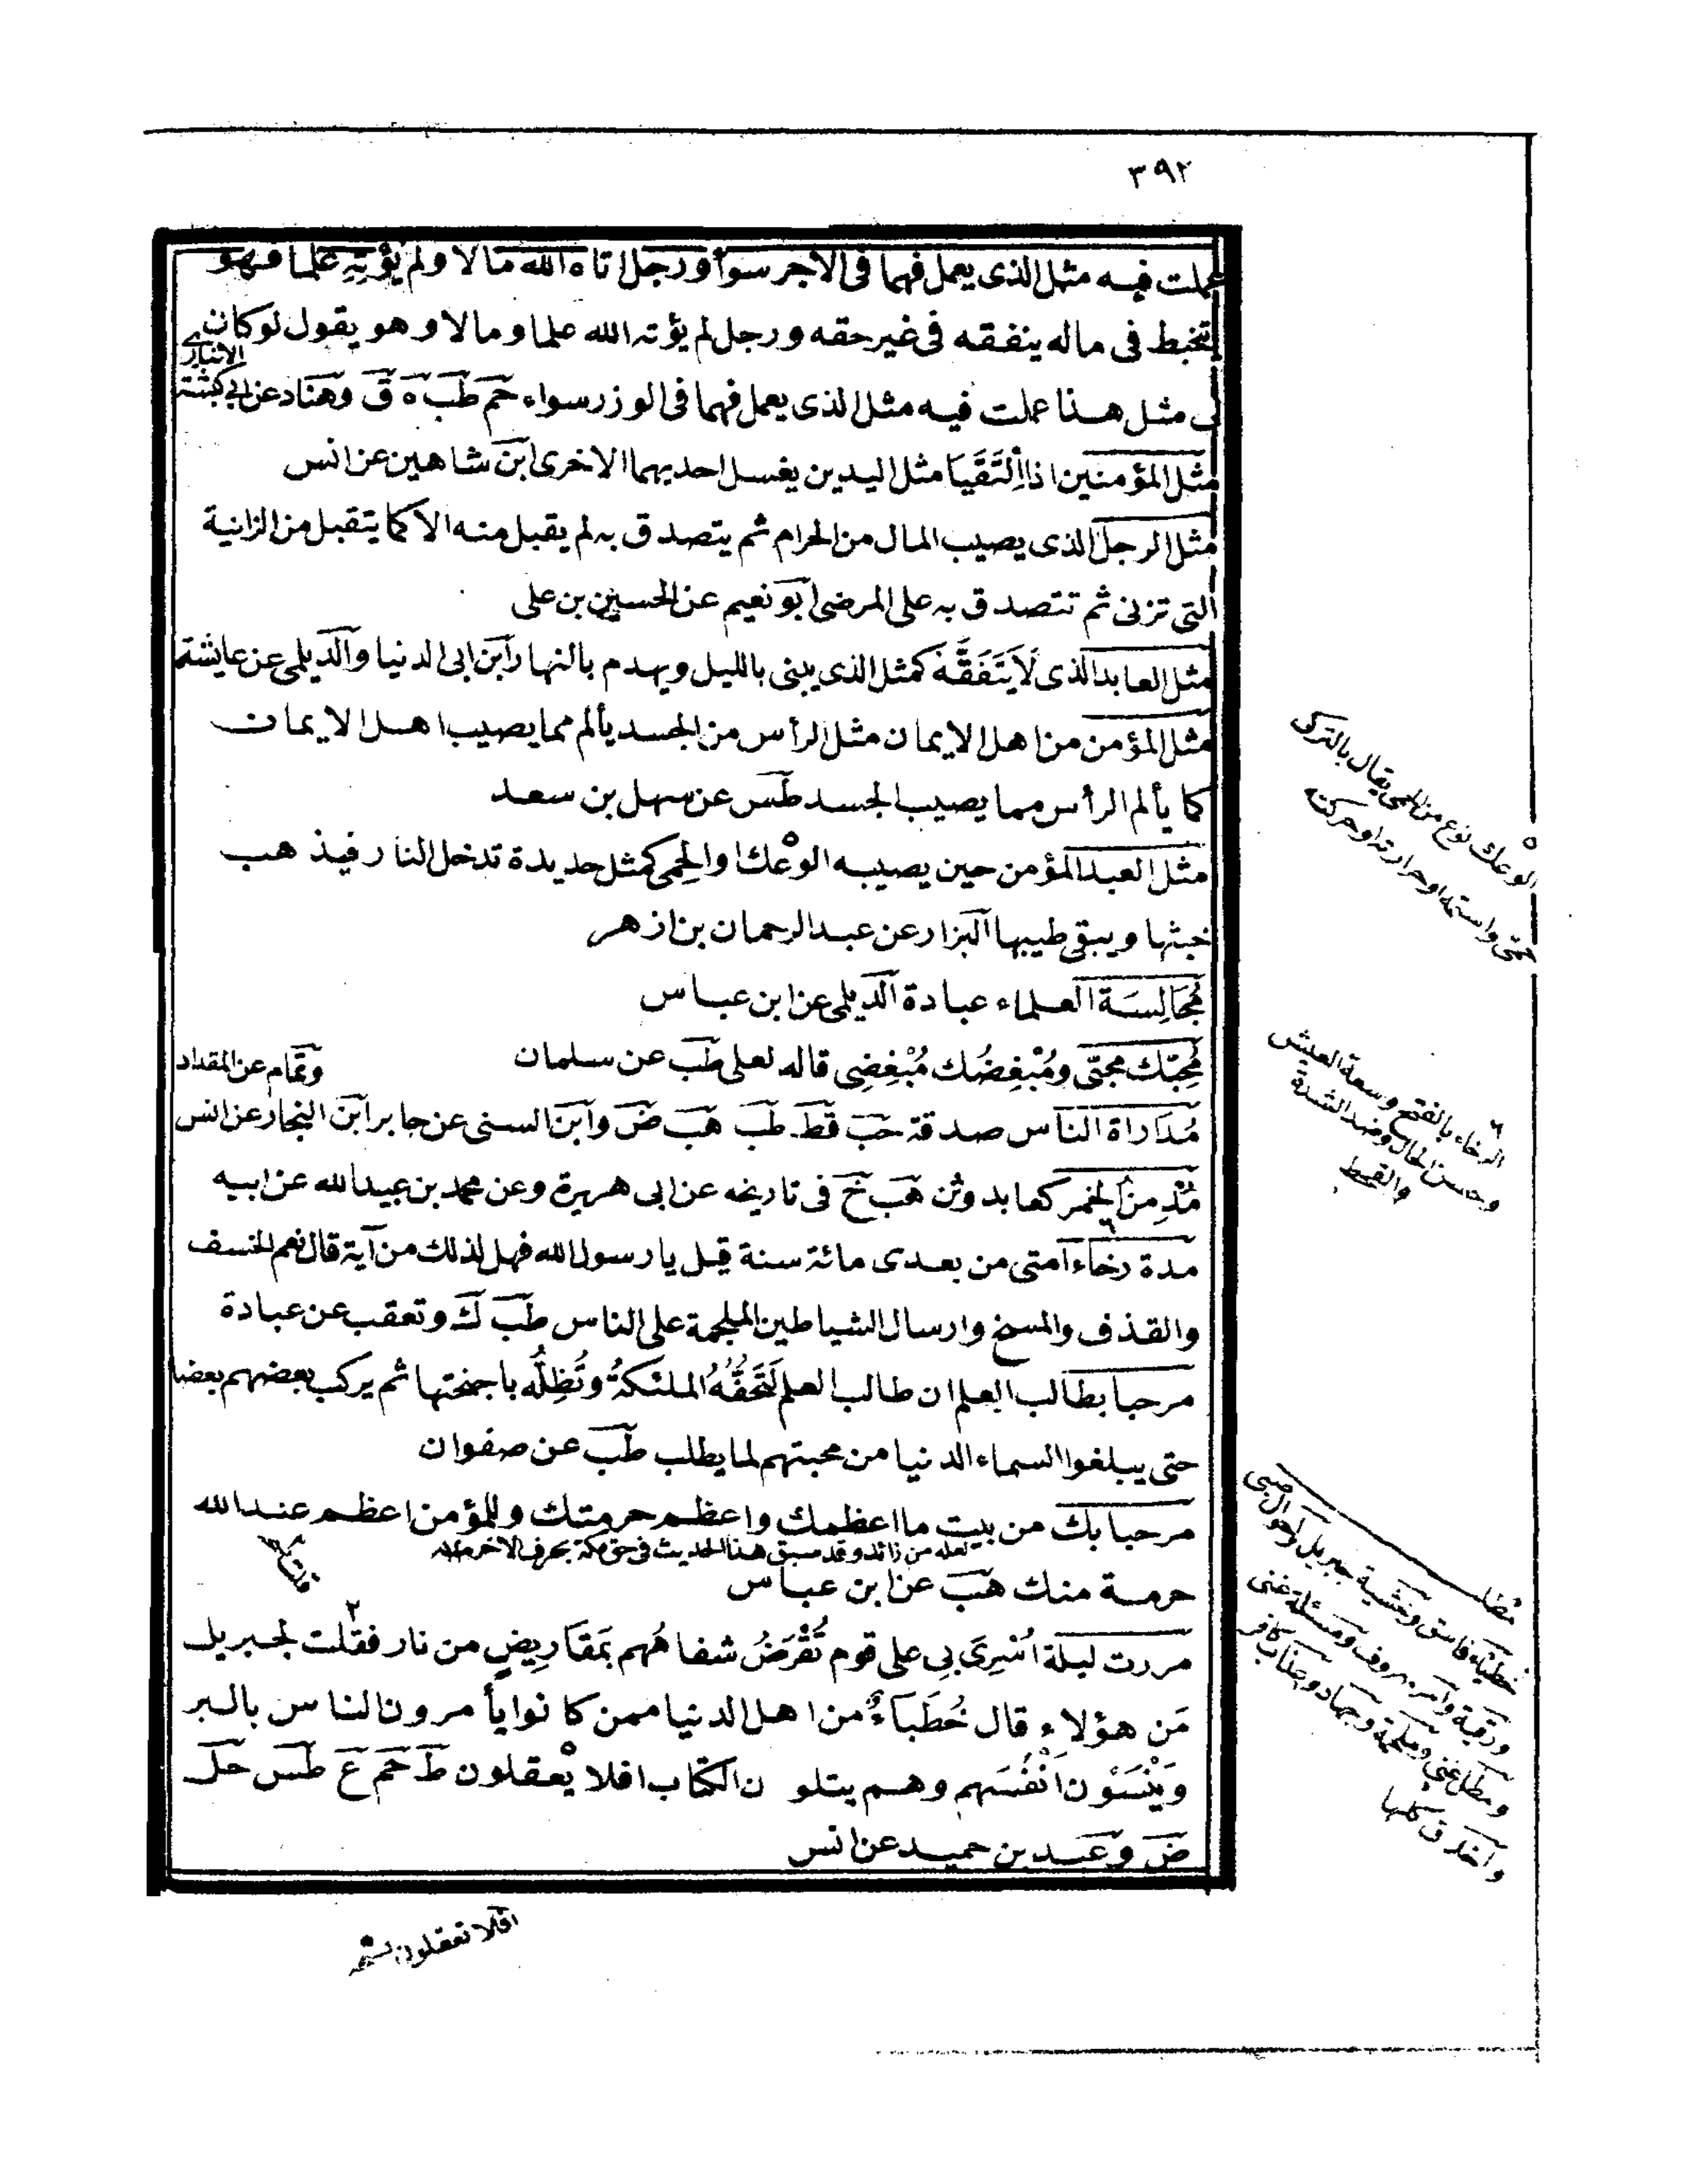 ٣٩٢
عملت فيه مثل الذى يعمل فهما فى الاجر سواء ورجل اتاه الله مالا ولم يؤته علما فهو
يتخبط فى ماله ينفقه فى غير حقه ورجل لم يؤته الله علما ومالا وهو يقول لو كان
لى مثل هذا عملت فيه مثل الذى يعمل فهما فى الوزر سواء حم طب ه ق وهناد عن ابى كبشة
الانمارى
مثل المؤمنين اذا اِلتَقَيَا مثل اليدين يغسل احديهما الاخرى ابن شاهين عن انس
مثل الرجل الذى يصيب المال من الحرام ثم يتصدق به لم يقبل منه الا كما يتقبل من الزانية
التى تزنى ثم تتصدق به على المرضى ابو نعيم عن الحسين بن على
مثل العابد الذى لَا يَتَفَقَّهُ كمثل الذى يبنى بالليل ويهدم بالنهار ابن ابى الدنيا والديلمى عن عايشة
مثل المؤمن من اهل الايمان مثل الرأس من الجسد يألم مما يصيب اهل الايمان
كما يألم الرأس مما يصيب الجسد طس عن سهل بن سعد
مثل العبد المؤمن حين يصيبه الوعك او الحمى كمثل حديدة تدخل النار فيذهب
خبثها ويبقى طيبها البزار عن عبد الرحمان بن ازهر
مُجَالِسَة العلماء عبادة الديلمى عن ابن عباس
مُحِبّك محبّى ومُبْغِضُك مُبْغِضِى قاله لعلى طب عن سلمان
وتمام عن المقداد
مُدَاراة الناس صدقة حب قط طب هب ض وابن السنى عن جابر ابن النجار عن انس
مُدْمِن الخمر كعابد وثن هب خ فى تاريخه عن ابى هريرة وعن محمد بن عبيد الله عن ابيه
مدة رخاء امتى من بعدى مائة سنة قيل يا رسول الله فهل لذلك من آية قال نعم الخسف
والقذف والمسخ وارسال الشياطين الملجمة على الناس طب ك وتعقب عن عبادة
مرحبا بطالب العلم ان طالب العلم لَتَحُفُّهُ الملئكةُ وتُظِلُّه باجنحتها ثم يركب بعضهم بعضا
حتى يبلغوا السماء الدنيا من محبتهم لما يطلب طب عن صفوان
مرحبا بك من بيت ما اعظمك واعظم حرمتك وللمؤمن اعظم عند الله
لعله من زائد وقد سبق هذا الحديث فى حق مكة بحرف الاخر
حرمة منك هب عن ابن عباس
مررت ليلة اُسْرِىَ بِى على قوم تُقْرَضُ شفاهُهم بمَقارِيضٍ من نار فقلت لجبريل
مَن هؤلاء قال خُطَبَاءُ من اهل الدنيا ممن كانوا يأمرون الناس بالبر
وَيَنْسَوْن اَنْفُسَهم وهم يتلون الكتاب افلا يعقلون ط حم ع طس حل
ض وعبد بن حميد عن انس
افلا تعقلون
الوعك نوع من الحمى يقال بالتركى
الرخاء بالفتح وسعة العيش
وحسن الحال وضد الشدة
والقحط